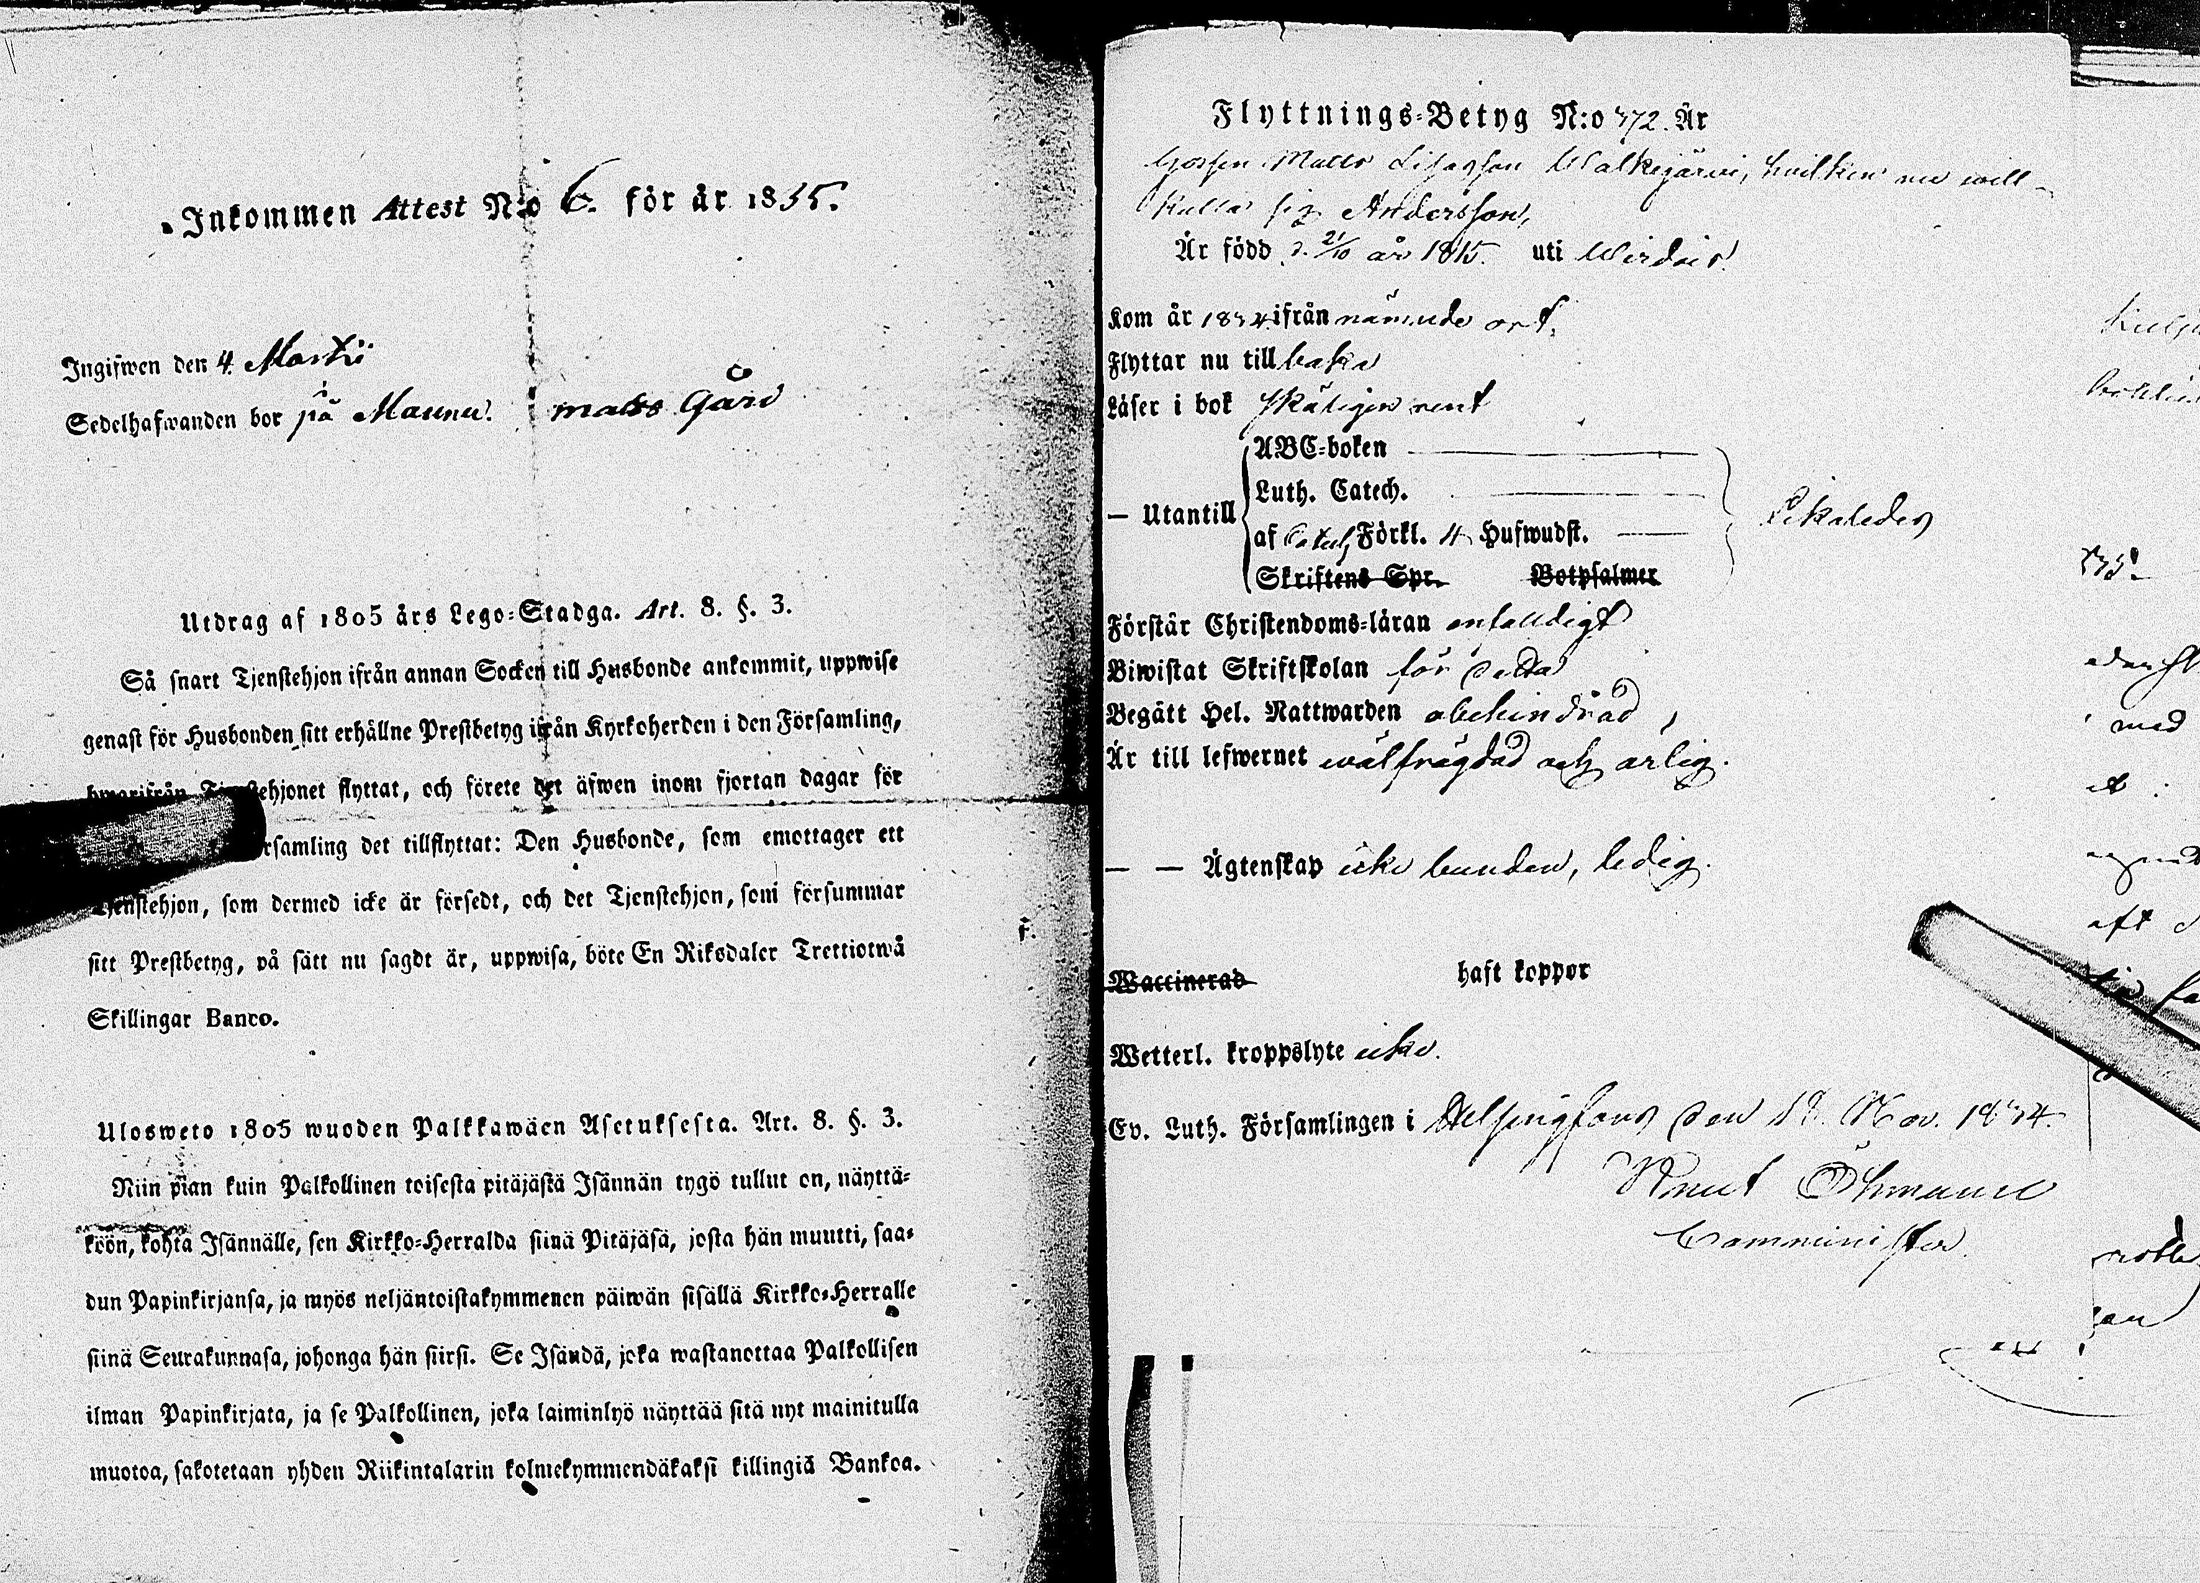 Inkommen Attest N:o 6. för år 1835.
Ingifwen den 4 Martii
Sedelhafwanden bor på Maunu. matts Gård
Utdrag af 1805 års Lego-Stadga. Art. 8. §. 3.
Så snart Tjenstehjon ifrån annan Socken till Husbonde ankommit, uppwise
genast för Husbonden sitt erhållne Prestbetyg ifrån Kyrkoherden i den Församling,
hwarifrån Tjenstehjonet flyttat, och förete det äfwen inom fjortan dagar för
rsamling det tillflyttat: Den Husbonde, som emottager ett
Tjenstehjon, som dermed icke är försedt, och det Tjenstehjon, som försummar
sitt Prestbetyg, på sätt nu sagdt är, uppwisa, böte En Riksdaler Trettiotwå
Skillingar Banco.
Ulosweto 1805 wuoden Palkkawäen Asetuksesta. Art. 8. §. 3.
Niin pian kuin Palkollinen toisesta pitäjästä Isännän tygö tullut on, näyttä-
köön, kohta Isännälle, sen Kirkko-Herralda siinä Pitäjäsä, josta hän muutti, saa-
dun Papinkirjansa, ja myös neljäntoistakymmenen päiwän sisällä Kirkko-Herralle
siinä Seurakunnasa, johonga hän siirsi. Se Isändä, joka wastanottaa Palkollisen
ilman Papinkirjata, ja se Palkollinen, joka laiminlyö näyttää sitä nyt mainitulla
muotoa, sakotetaan yhden Riikintalarin kolmekymmendäkaksi killingiä Bankoa.
Flyttnings-Betyg N:o 372. År
Gossen Matts Lisasson Walkejärvi, hvilken nu will
kalla sig Andersson,
Är född d. 21/10 år 1815. uti Wirdois.
Kom år 1834 ifrån nämnde ort.
Flyttar nu tillbaka
Läser i bok skäligen rent
— Utantill
ABC-boken
Luth. Catech.
af Catech. Förkl. 4 Hufwudst.
Skriftens Spr. Botpsalmer
Likaledes
Förstår Christendoms-läran enfaldigt
Biwistat Skriftskolan för detta
Begått Hel. Nattwarden obehindrad,
Är till lefwernet wälfrägdad och ärlig.
— — Ägtenskap icke bunden, ledig.
Waccinerad haft koppor
Wetterl. kroppslyte icke.
Ev. Luth. Församlingen i Helsingfors den 18. Nov. 1834.
Knut Öhmann
Comminister.
med